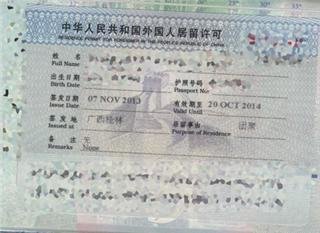 中华人民共和国外国人居留许可
RESIDENCE PERMIT FOR FOREIGNER IN THE PEOPLE'S REPUBLIC OF CHINA
姓名
Full Name
出生日期 护照号码
Birth Date Passport No
签发日期 07 NOV 2013 有效期至 20 OCT 2014
Issue Date Valid Until
签发地 广西桂林 居留事由 团聚
Issued at Purpose of Residence
备注 无
Remarks None